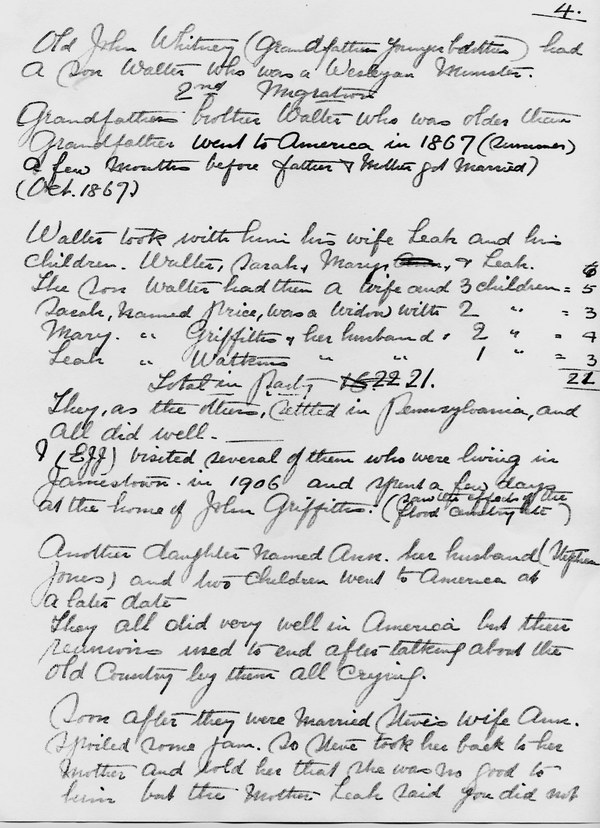 4.
Old John Whitney (Grandfather younger brother) had
a son Walter who was a Wesleyan Minister.
2nd Migration
Grandfathers brother Walter who was older then
Grandfather went to America in 1867 (summer)
a few months before father & Mother got Married)
(Oct. 1867)
Walter took with him his wife Leah and his
children. Walter, Sarah, Mary, & Leah. 6
The son Walter had then a wife and 3 children = 5
Sarah, named Price, was a widow with 2 " = 3
Mary. " Griffiths & her husband & 2 " = 4
Leah " Watkins " " 1 " = 3
Total in Party 21. 21
They, as the others, settled in Pennsylvania, and
all did well.
I (EJJ) visited several of them who were living in
Jamestown in 1906 and spent a few days
at the home of John Griffiths. (saw the effects of the
flood )
Another daughter named Ann. her husband (Stephen
Jones) and two children went to America at
a later date
They all did very well in America but their
reunions used to end after talking about the
old Country by them all crying.
Soon after they were married Steve's wife Ann.
spoiled some jam. So Steve took her back to her
Mother and told her that she was no good to
him but the Mother Leah said you did not